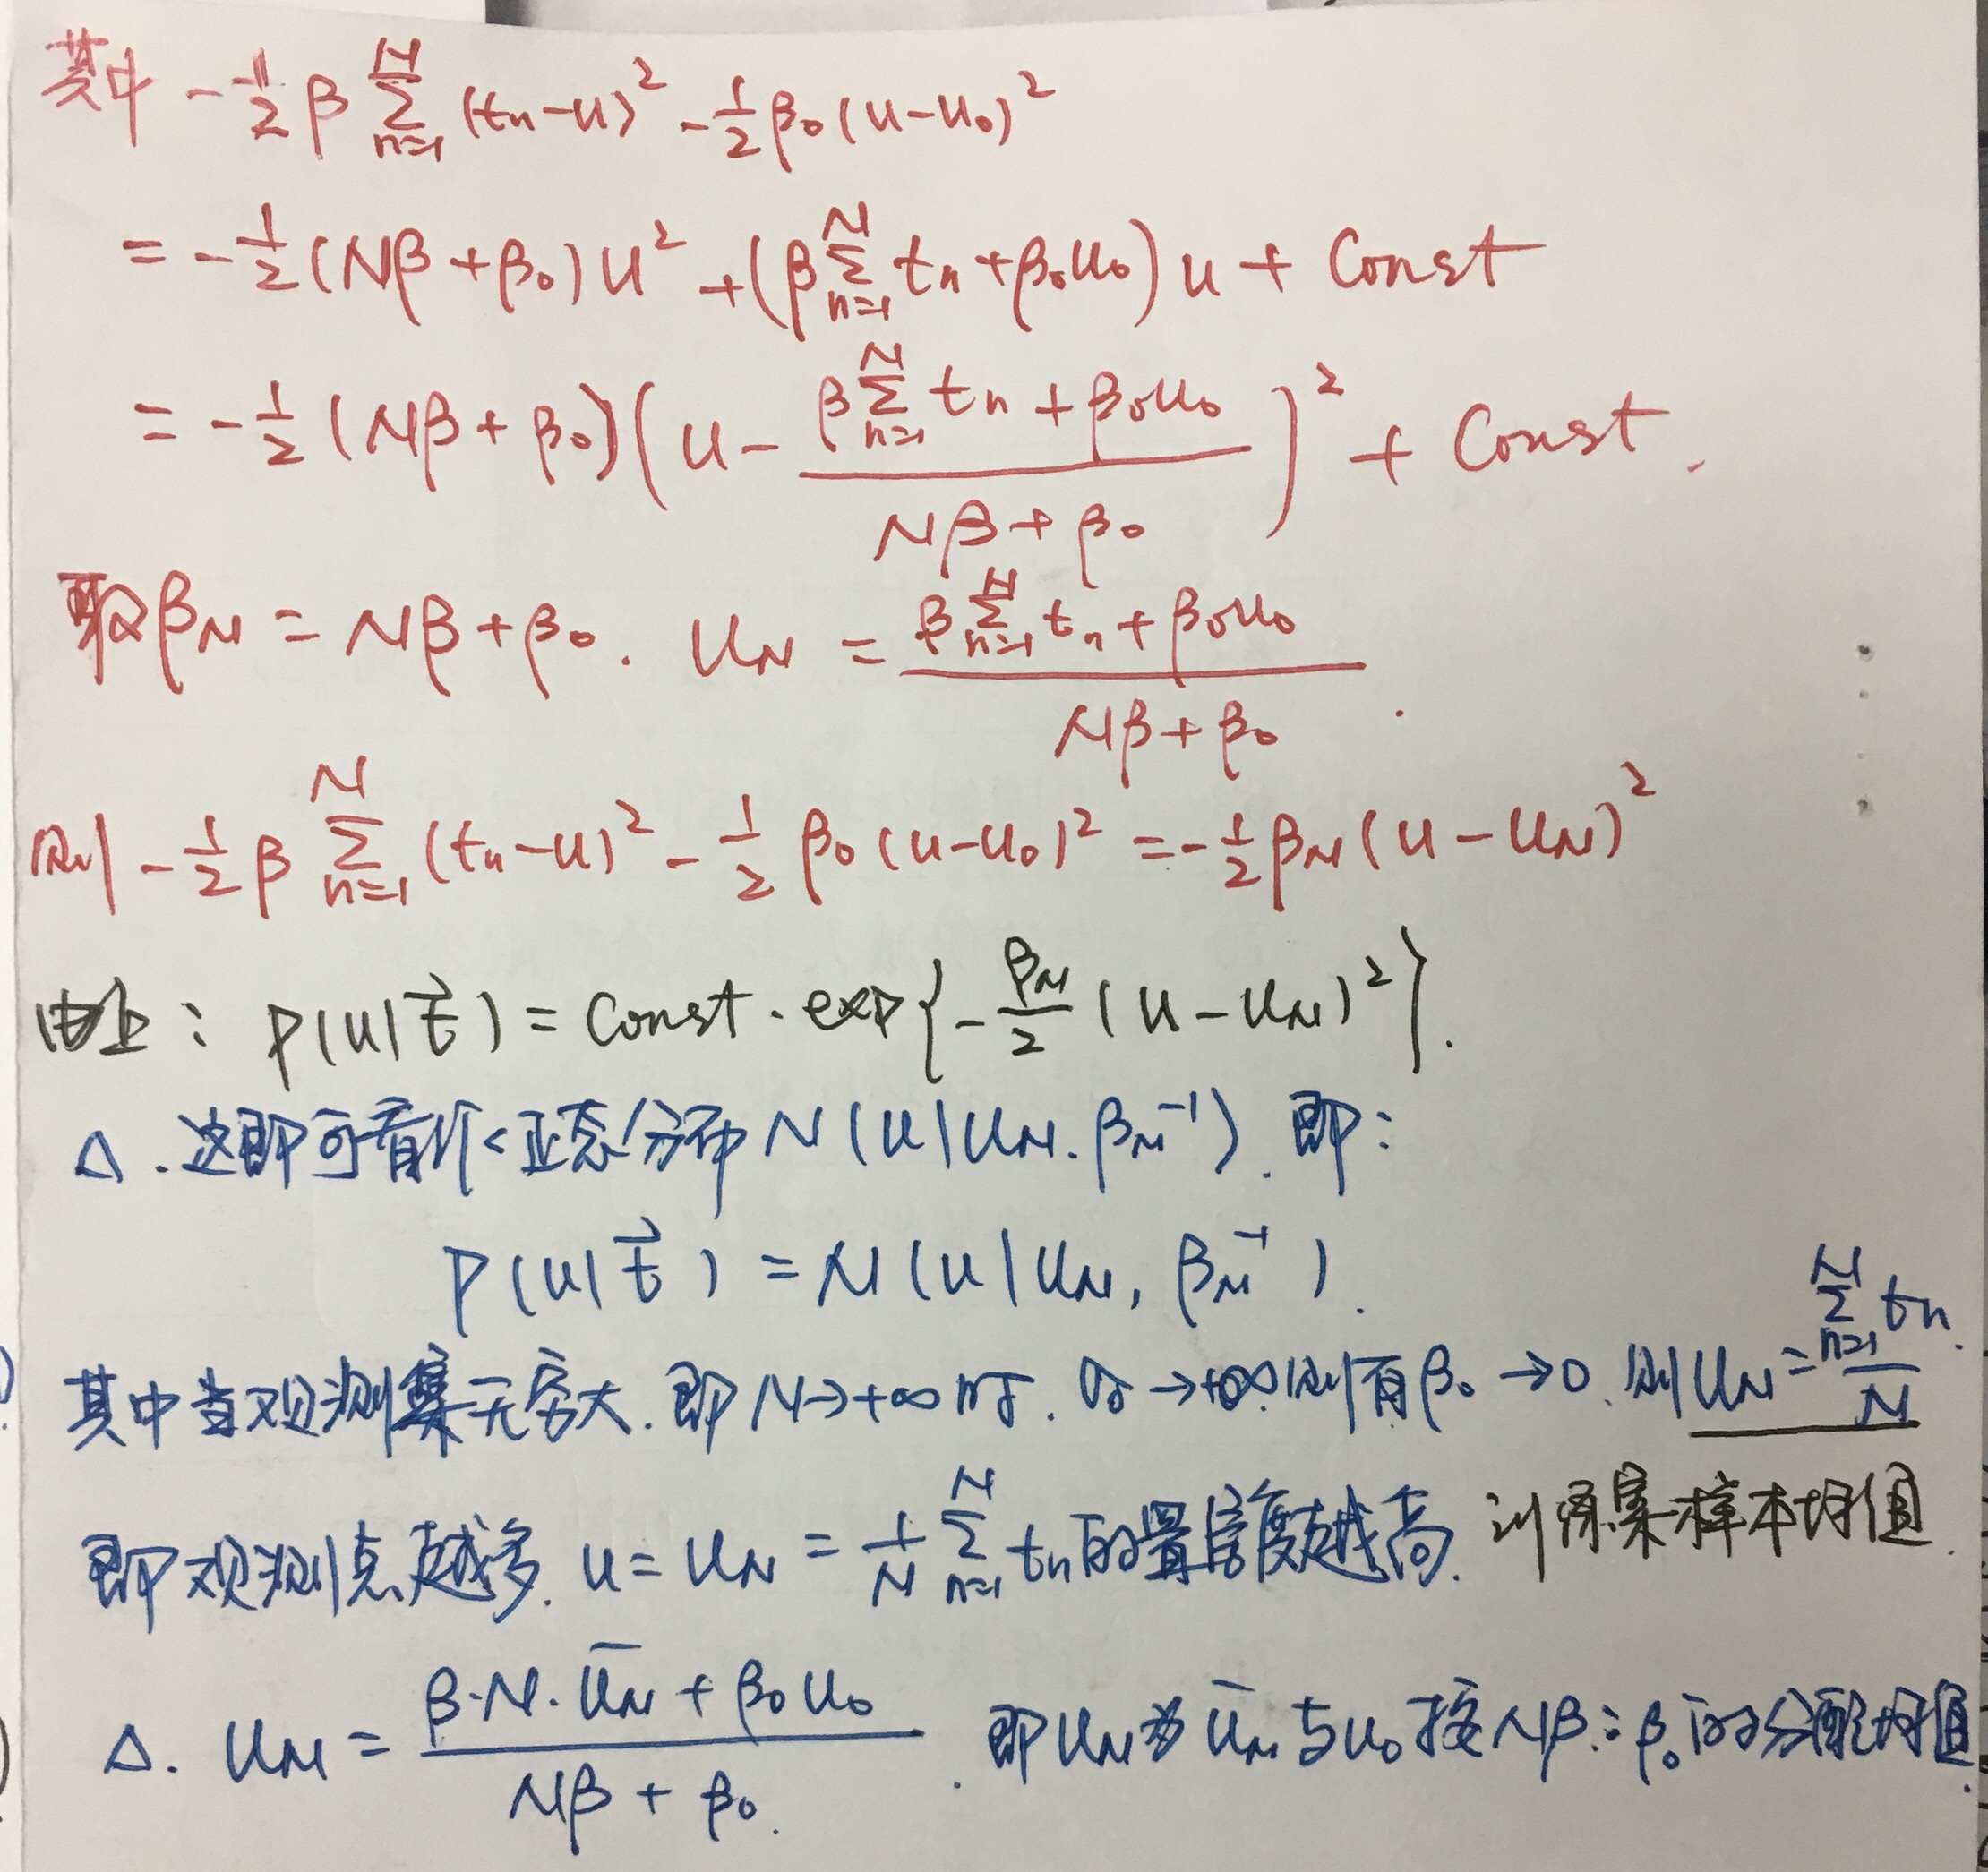 其中 -½ β ∑_{n=1}^{N} (tₙ-u)² - ½ β₀ (u-u₀)²
= -½ (Nβ+β₀) u² + (β ∑_{n=1}^{N} tₙ + β₀u₀) u + Const
= -½ (Nβ+β₀) (u - (β ∑_{n=1}^{N} tₙ + β₀u₀) / (Nβ+β₀))² + Const.
取 β_N = Nβ+β₀. u_N = (β ∑_{n=1}^{N} tₙ + β₀u₀) / (Nβ+β₀).
则 -½ β ∑_{n=1}^{N} (tₙ-u)² - ½ β₀ (u-u₀)² = -½ β_N (u-u_N)²
由上: P(u|t⃗) = Const · exp{-β_N/2 (u-u_N)²}.
Δ. 这即可看作 正态分布 N(u|u_N. β_N⁻¹). 即:
P(u|t⃗) = N(u|u_N, β_N⁻¹).
其中当观测集无穷大. 即 N→+∞时. →+∞ 则有β₀→0. 则 u_N = ∑_{n=1}^{N} tₙ / N.
即观测点越多. u = u_N = 1/N ∑_{n=1}^{N} tₙ的置信度越高. 训练集样本均值.
Δ. u_N = (β·N·ū_N + β₀u₀) / (Nβ+β₀). 即u_N为ū_N与u₀按Nβ:β₀的分配均值.